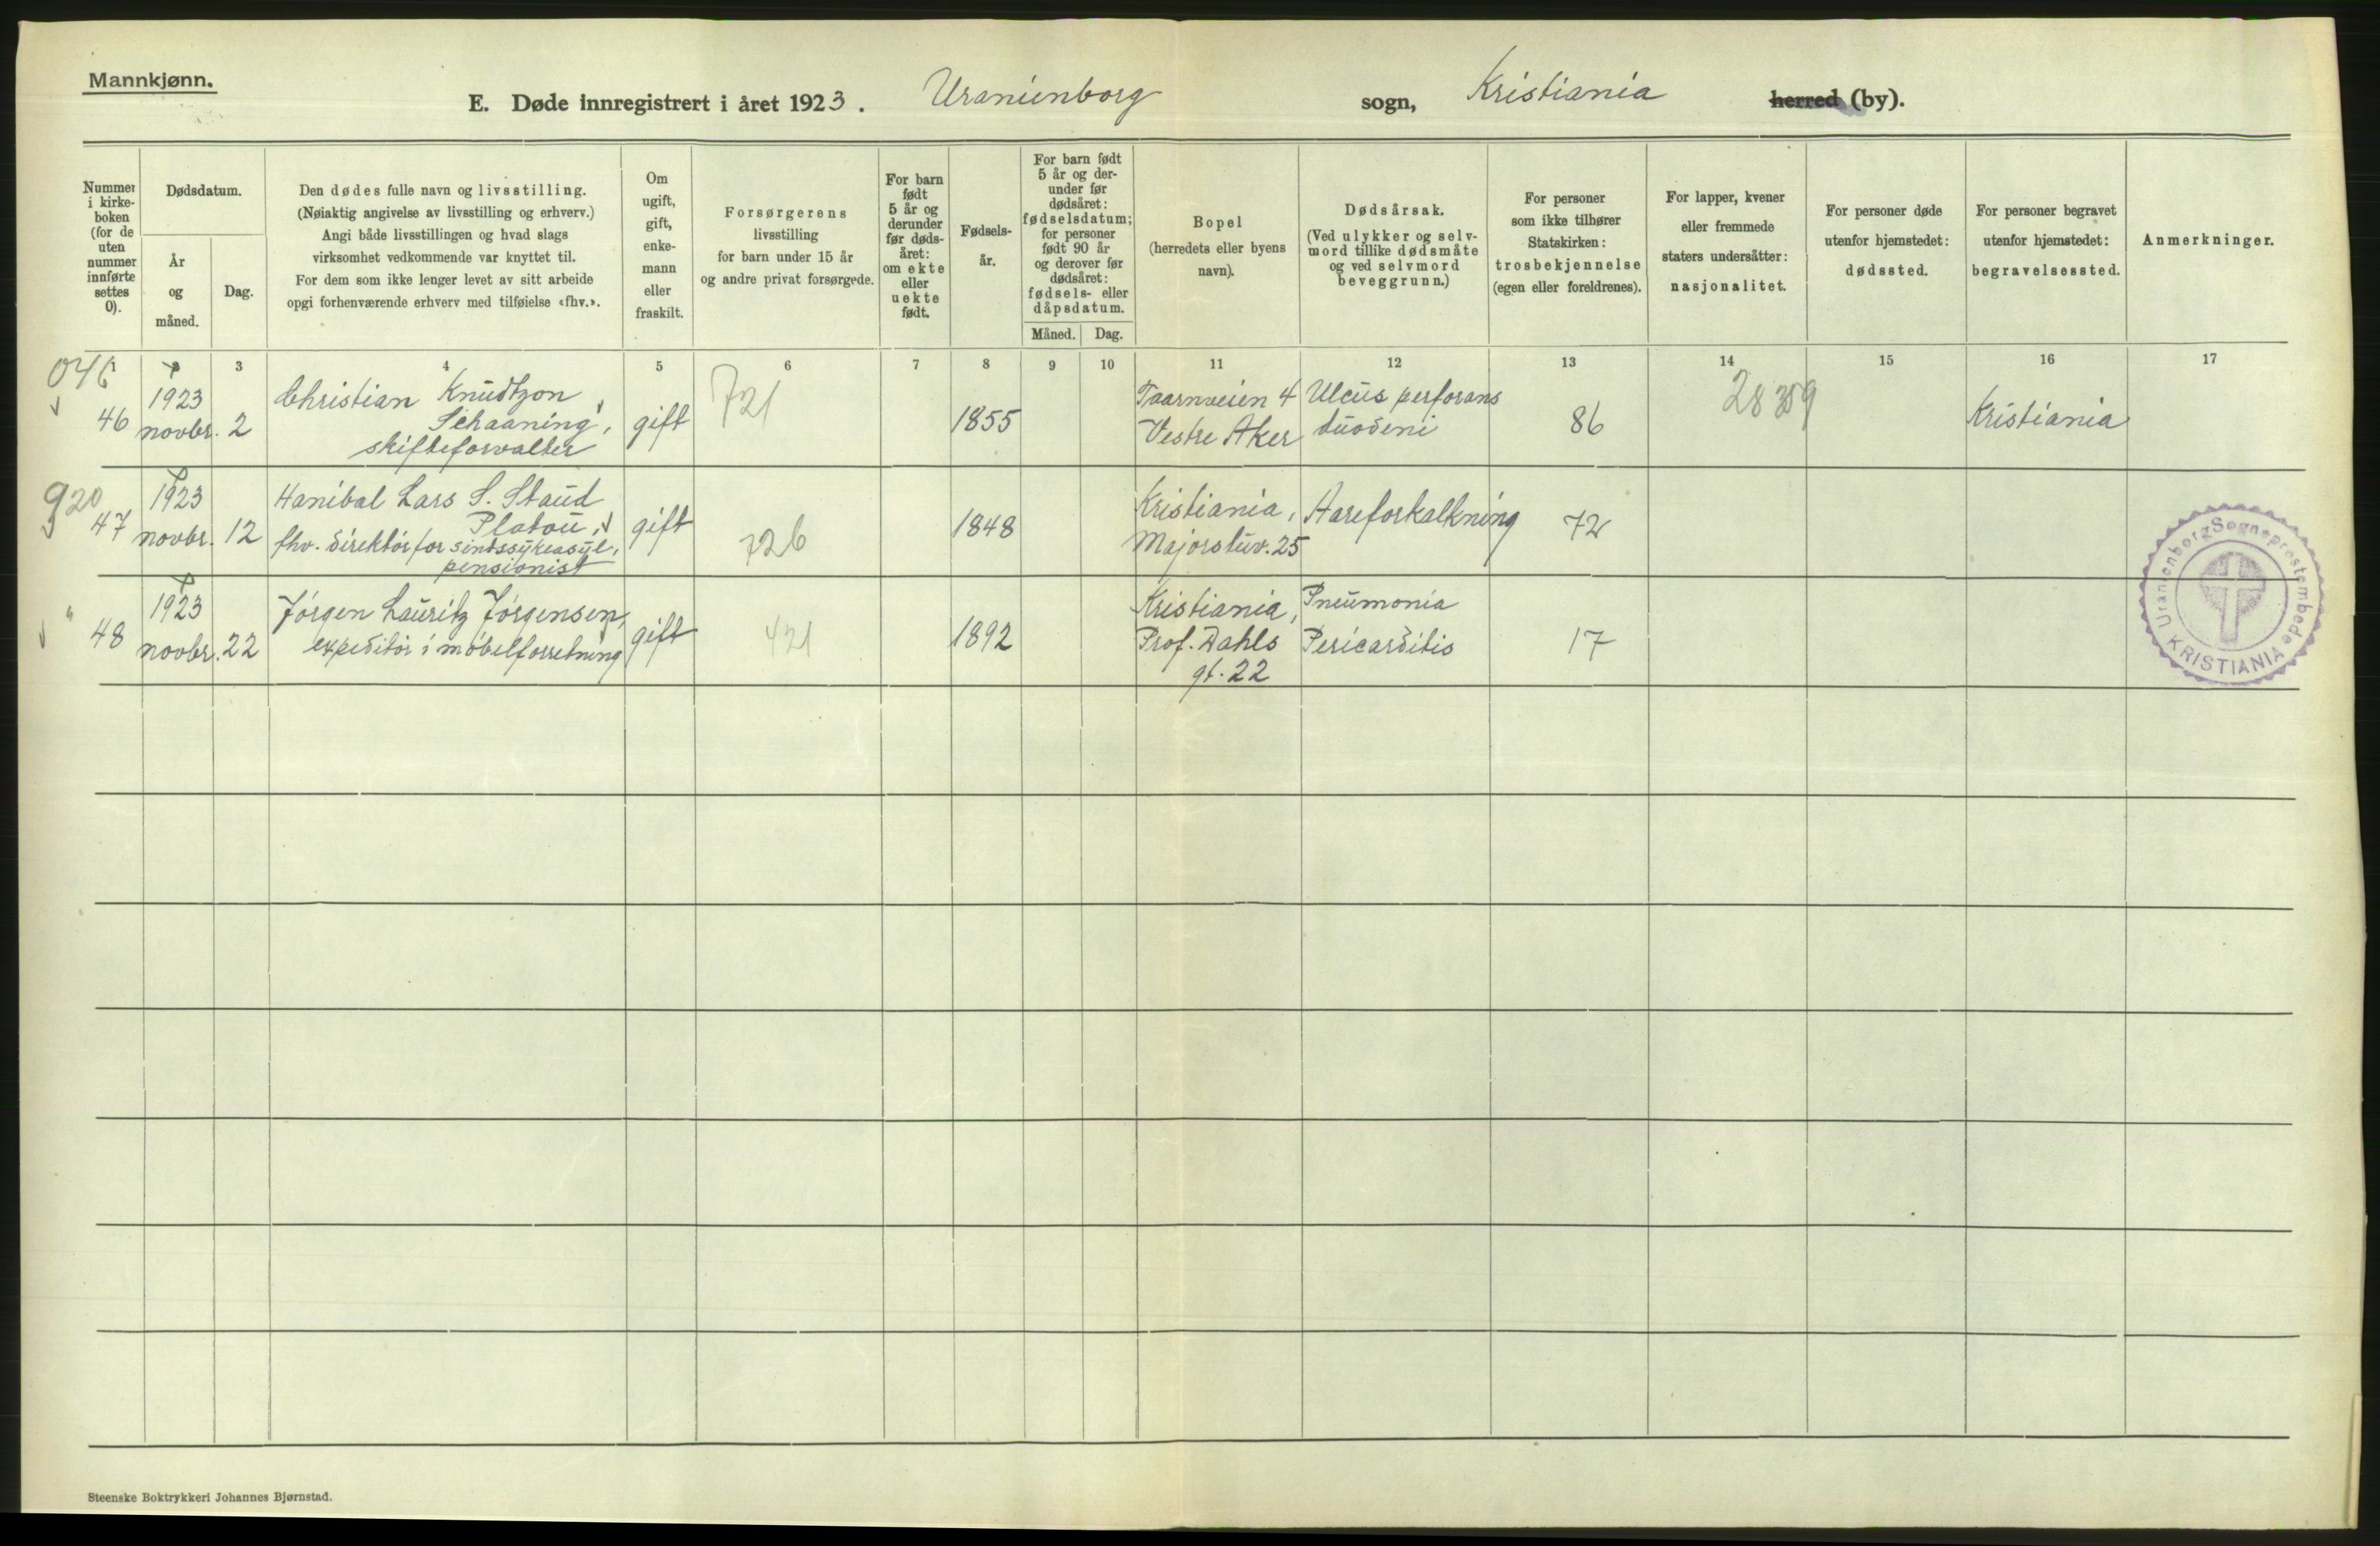 Mannkjønn.
E. Døde innregistrert i året 1923. Uranienborg sogn, Kristiania herred (by).
Nummer
i kirke-
boken
(for de
uten
nummer
innførte
settes
0).
Dødsdatum.
År
og
måned.
Dag.
Den dødes fulle navn og livsstilling.
(Nøiaktig angivelse av livsstilling og erhverv.)
Angi både livsstillingen og hvad slags
virksomhet vedkommende var knyttet til.
For dem som ikke lenger levet av sitt arbeide
opgi forhenværende erhverv med tilføielse «fhv.».
Om
ugift,
gift,
enke-
mann
eller
fraskilt.
Forsørgerens
livsstilling
for barn under 15 år
og andre privat forsørgede.
For barn
født
5 år og
derunder
før døds-
året:
om ekte
eller
uekte
født.
Fødsels-
år.
For barn født
5 år og der-
under før
dødsåret:
fødselsdatum;
for personer
født 90 år
og derover før
dødsåret:
fødsels- eller
dåpsdatum.
Måned. Dag.
Bopel
(herredets eller byens
navn).
Dødsårsak.
(Ved ulykker og selv-
mord tillike dødsmåte
og ved selvmord
beveggrunn.)
For personer
som ikke tilhører
Statskirken:
trosbekjennelse
(egen eller foreldrenes).
For lapper, kvener
eller fremmede
staters undersåtter:
nasjonalitet.
For personer døde
utenfor hjemstedet:
dødssted.
For personer begravet
utenfor hjemstedet:
begravelsessted.
Anmerkninger.
1 3 4 5 6 7 8 9 10 11 12 13 14 15 16 17
046
46
1923
novbr. 2
Christian Knudtzon
Schaaning,
skifteforvalter
gift
721
1855
Taarnveien 4
Vestre Aker
Ulcus perforans
duodeni
86
28359
Kristiania
920
47
1923
novbr. 12
Hanibal Lars S. Staud
Platou,
fhv. direktør for sindssykeasyl,
pensionist
gift
726
1848
Kristiania,
Majorstuv. 25
Aareforkalkning
72
"
48
1923
novbr. 22
Jørgen Lauritz Jørgensen,
expeditør i møbelforretning
gift
421
1892
Kristiania,
Prof. Dahls
gt. 22
Pneumonia
Pericarditis
17
Uranienborg Sogneprestembede
KRISTIANIA
Steenske Boktrykkeri Johannes Bjørnstad.